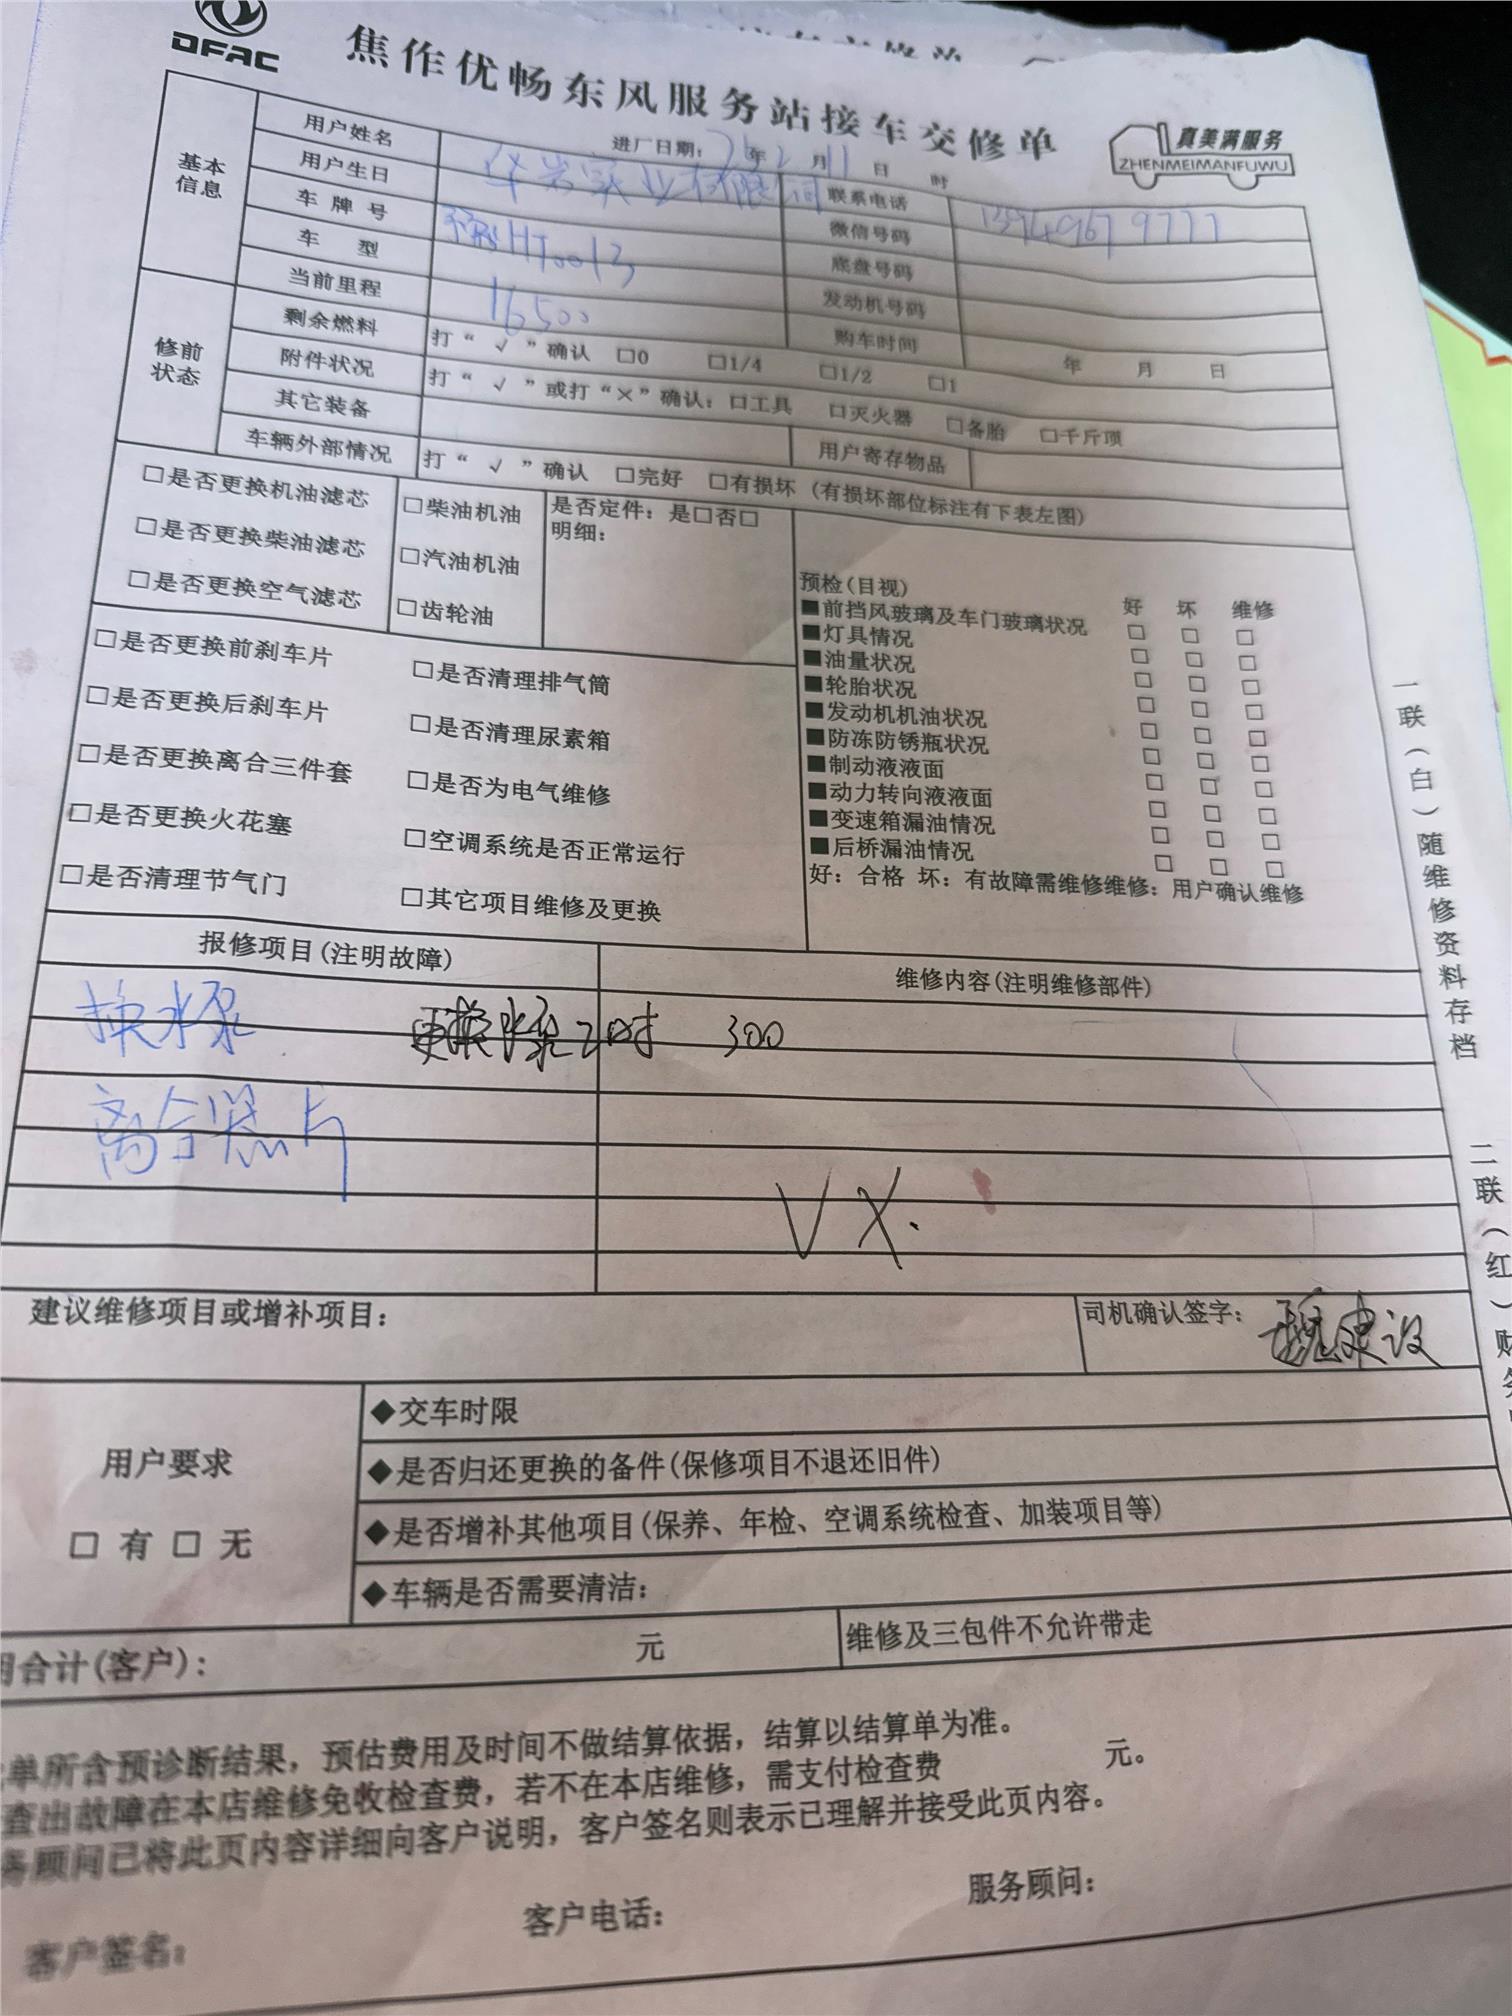 DFAC
焦作优畅东风服务站接车交修单
真美满服务
ZHENMEIMANFUWU
进厂日期: 25年2月11日 时
基本信息
用户姓名 华岩实业有限公司 联系电话
用户生日 微信号码
车牌号 豫HT0013 底盘号码
车 型 发动机号码
当前里程 16500 购车时间 年 月 日
修前状态
剩余燃料 打“√”确认 □0 □1/4 □1/2 □1
附件状况 打“√”或打“×”确认: □工具 □灭火器 □备胎 □千斤顶
其它装备 用户寄存物品
车辆外部情况 打“√”确认 □完好 □有损坏 (有损坏部位标注有下表左图)
□是否更换机油滤芯
□是否更换柴油滤芯
□是否更换空气滤芯
□柴油机油
□汽油机油
□齿轮油
是否定件: 是□否□
明细:
□是否更换前刹车片
□是否更换后刹车片
□是否更换离合三件套
□是否更换火花塞
□是否清理节气门
□是否清理排气筒
□是否清理尿素箱
□是否为电气维修
□空调系统是否正常运行
□其它项目维修及更换
预检(目视) 好 坏 维修
■前挡风玻璃及车门玻璃状况 □ □ □
■灯具情况 □ □ □
■油量状况 □ □ □
■轮胎状况 □ □ □
■发动机机油状况 □ □ □
■防冻防锈瓶状况 □ □ □
■制动液液面 □ □ □
■动力转向液液面 □ □ □
■变速箱漏油情况 □ □ □
■后桥漏油情况 □ □ □
好: 合格 坏: 有故障需维修维修: 用户确认维修
报修项目(注明故障) 维修内容(注明维修部件)
换水泵 更换水泵工时 300
离合器片
VX.
建议维修项目或增补项目: 司机确认签字: 魏建设
用户要求
□ 有 □ 无
◆交车时限
◆是否归还更换的备件(保修项目不退还旧件)
◆是否增补其他项目(保养、年检、空调系统检查、加装项目等)
◆车辆是否需要清洁:
合计(客户): 元 维修及三包件不允许带走
单所含预诊断结果, 预估费用及时间不做结算依据, 结算以结算单为准。
查出故障在本店维修免收检查费, 若不在本店维修, 需支付检查费 元。
顾问已将此页内容详细向客户说明, 客户签名则表示已理解并接受此页内容。
客户签名: 客户电话: 服务顾问:
一联(白)随维修资料存档
二联(红)财